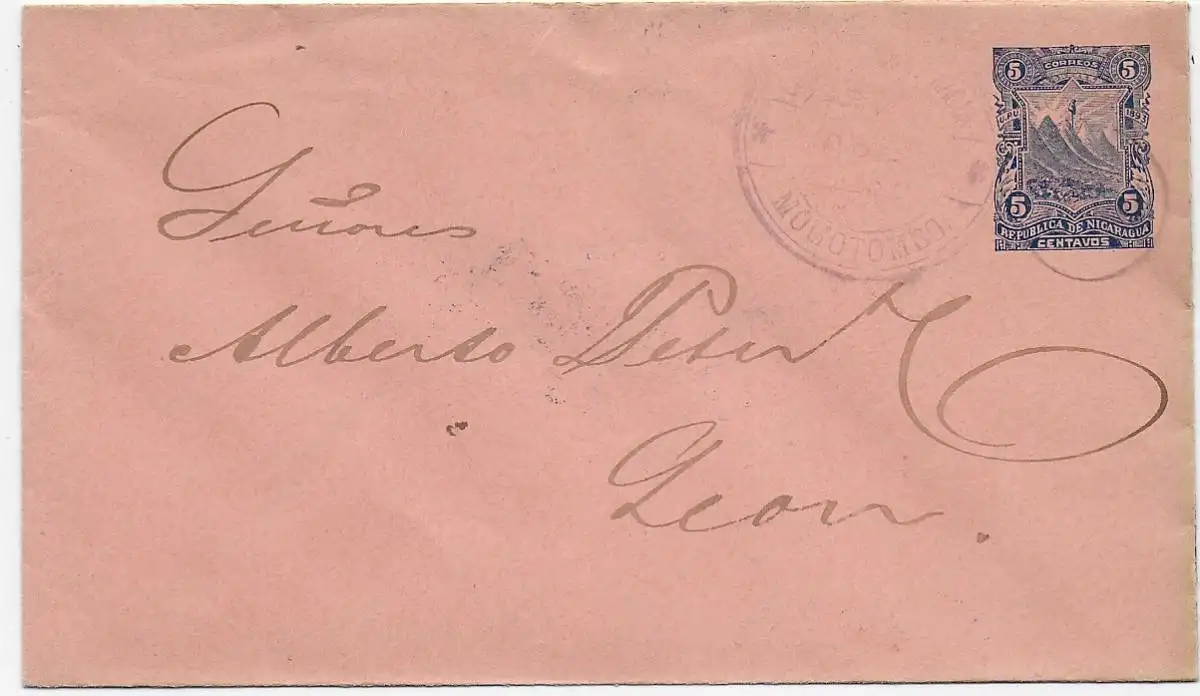 5 CORREOS 5
U.P.U. 1893
5 5
REPUBLICA DE NICARAGUA
CENTAVOS
MOMOTOMBO.
Señores
Alberto Peter
Leon.